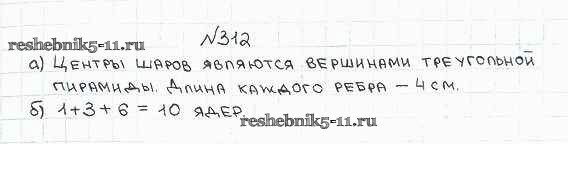 №312
reshebnik5-11.ru
а) Центры шаров являются вершинами треугольной
пирамиды. Длина каждого ребра – 4 см.
б) 1+3+6 = 10 ядер.
reshebnik5-11.ru